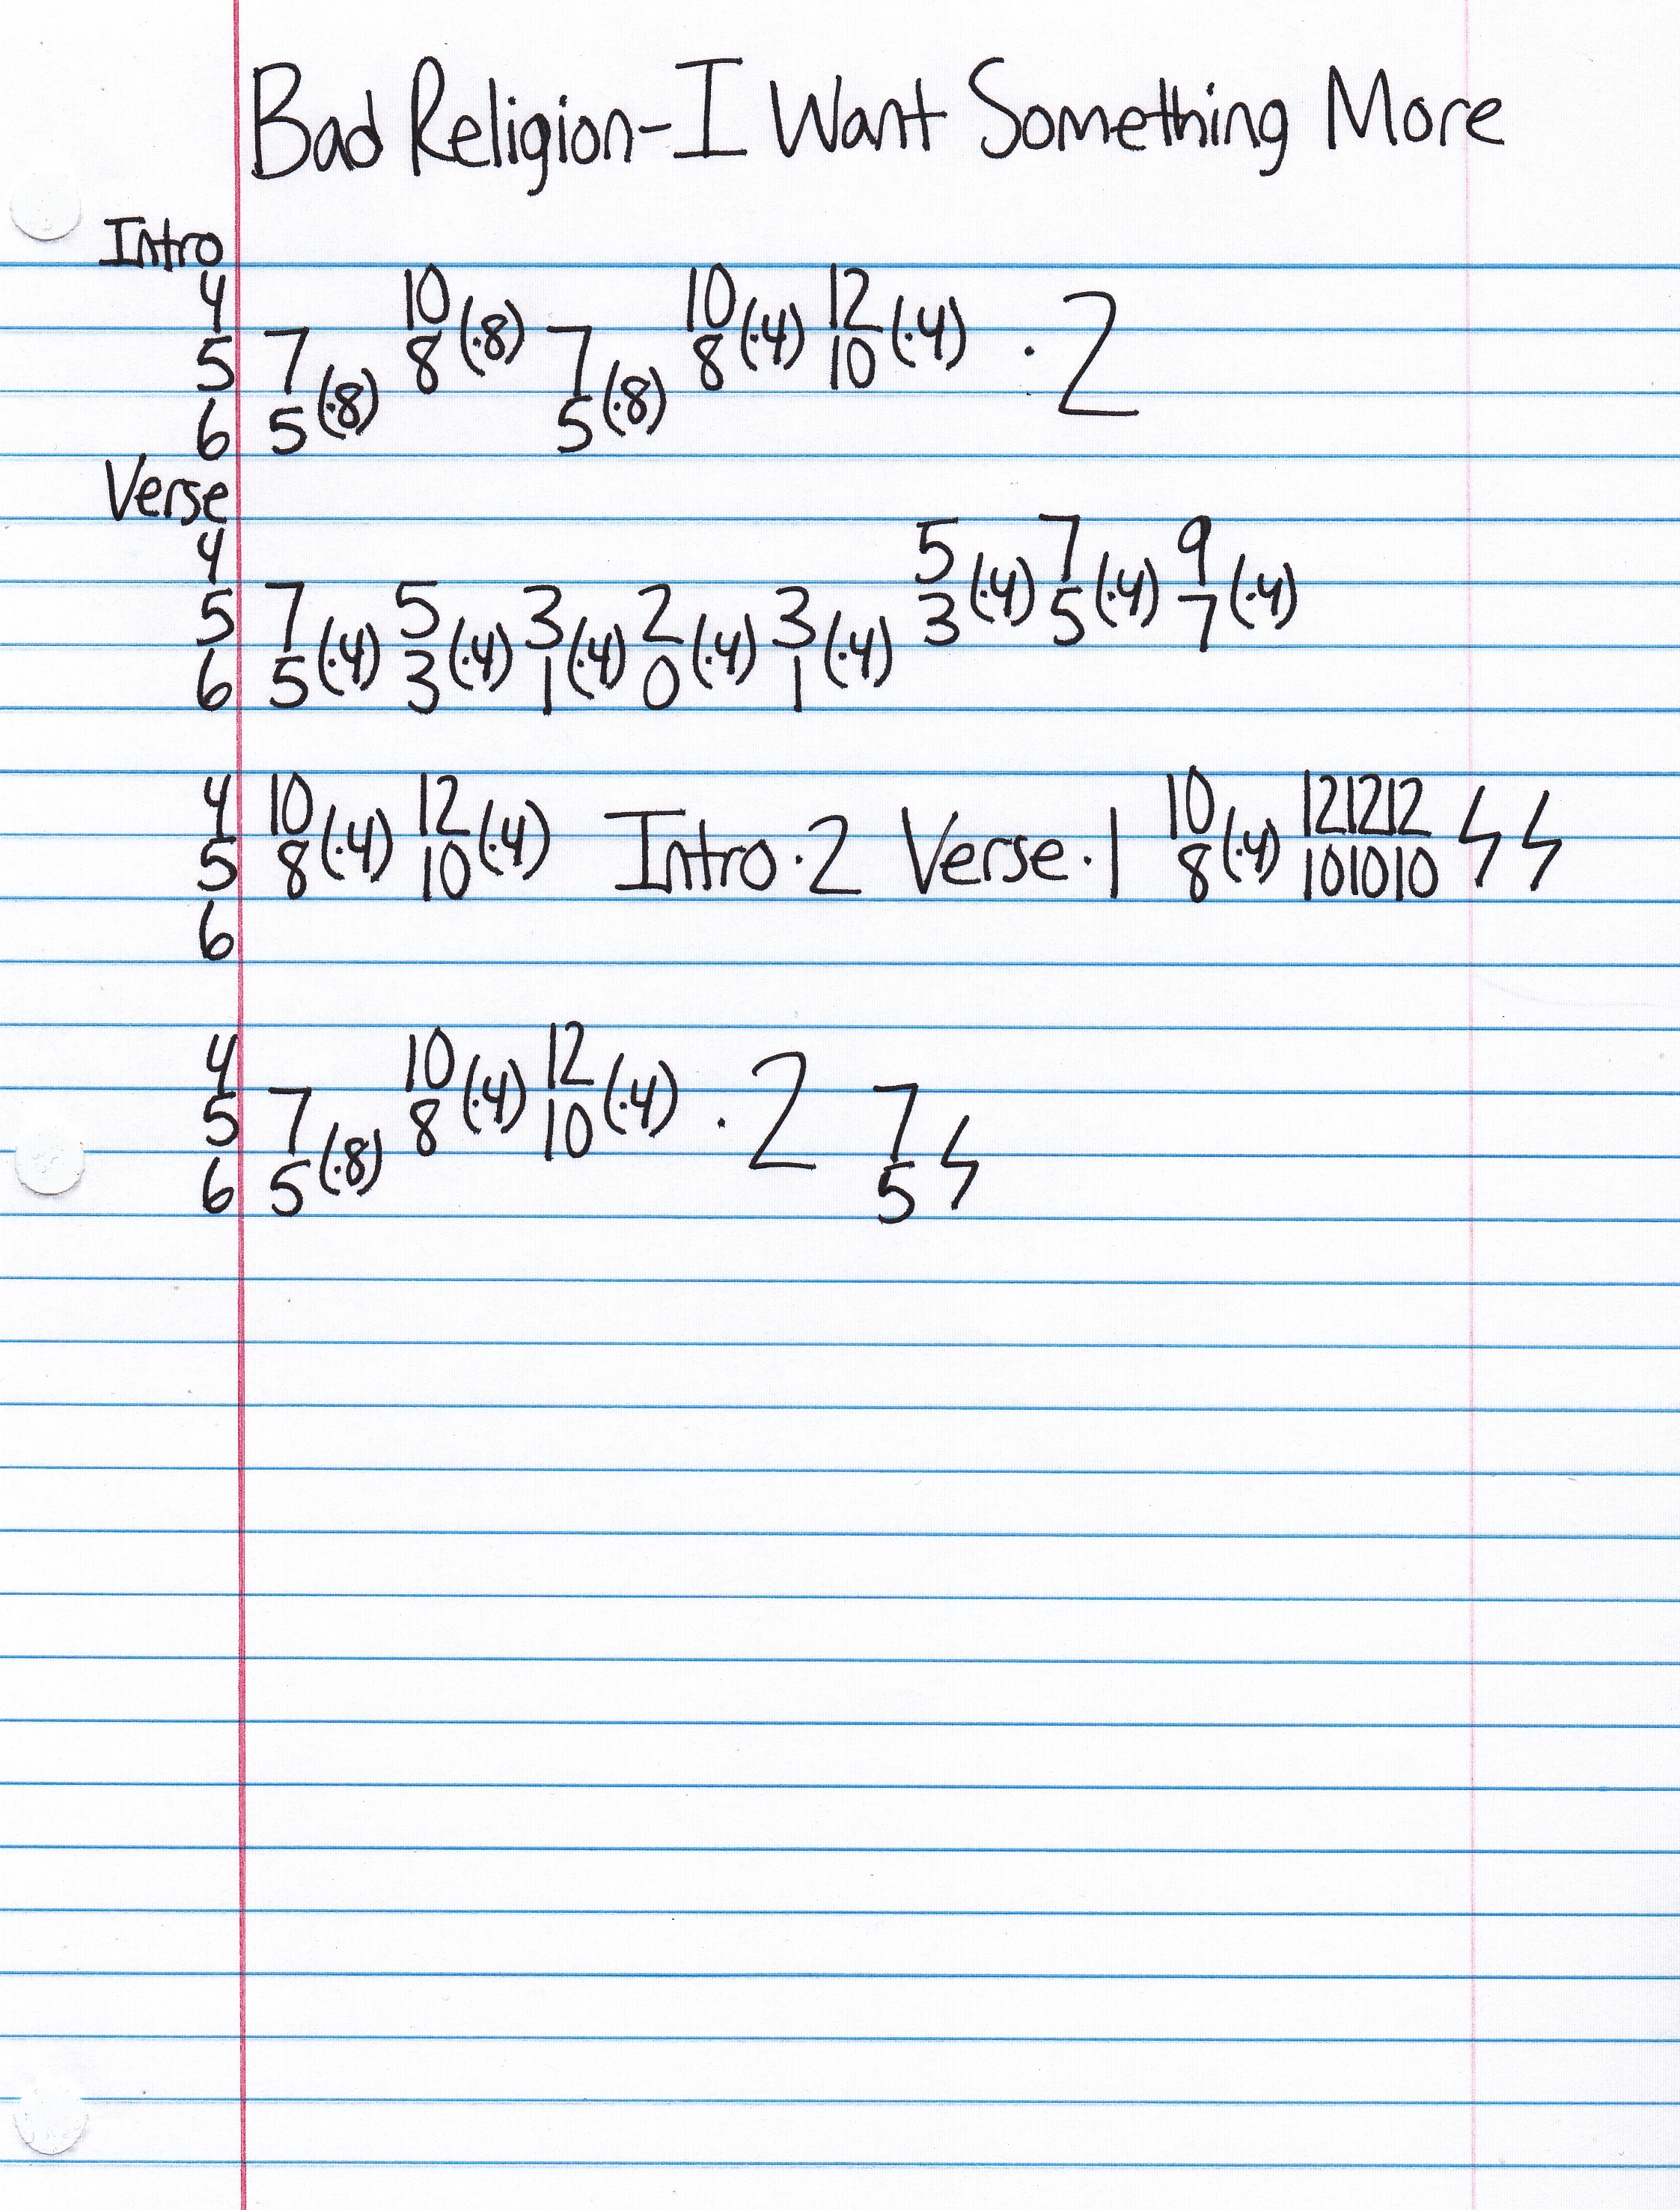 Bad Religion-I Want Something More
Intro
4 10 10 12
5 7 8 (·8) 7 8 (·4) 10 (·4) ·2
6 5 (·8) 5 (·8)
Verse
4 5 7 9
5 7 5 3 2 3 3 (·4) 5 (·4) 7 (·4)
6 5 (·4) 3 (·4) 1 (·4) 0 (·4) 1 (·4)
4 10 12 10 12 12 12
5 8 (·4) 10 (·4) Intro·2 Verse·1 8 (·4) 10 10 10 ϟ ϟ
6
4 10 12
5 7 8 (·4) 10 (·4) ·2 7
6 5 (·8) 5 ϟ